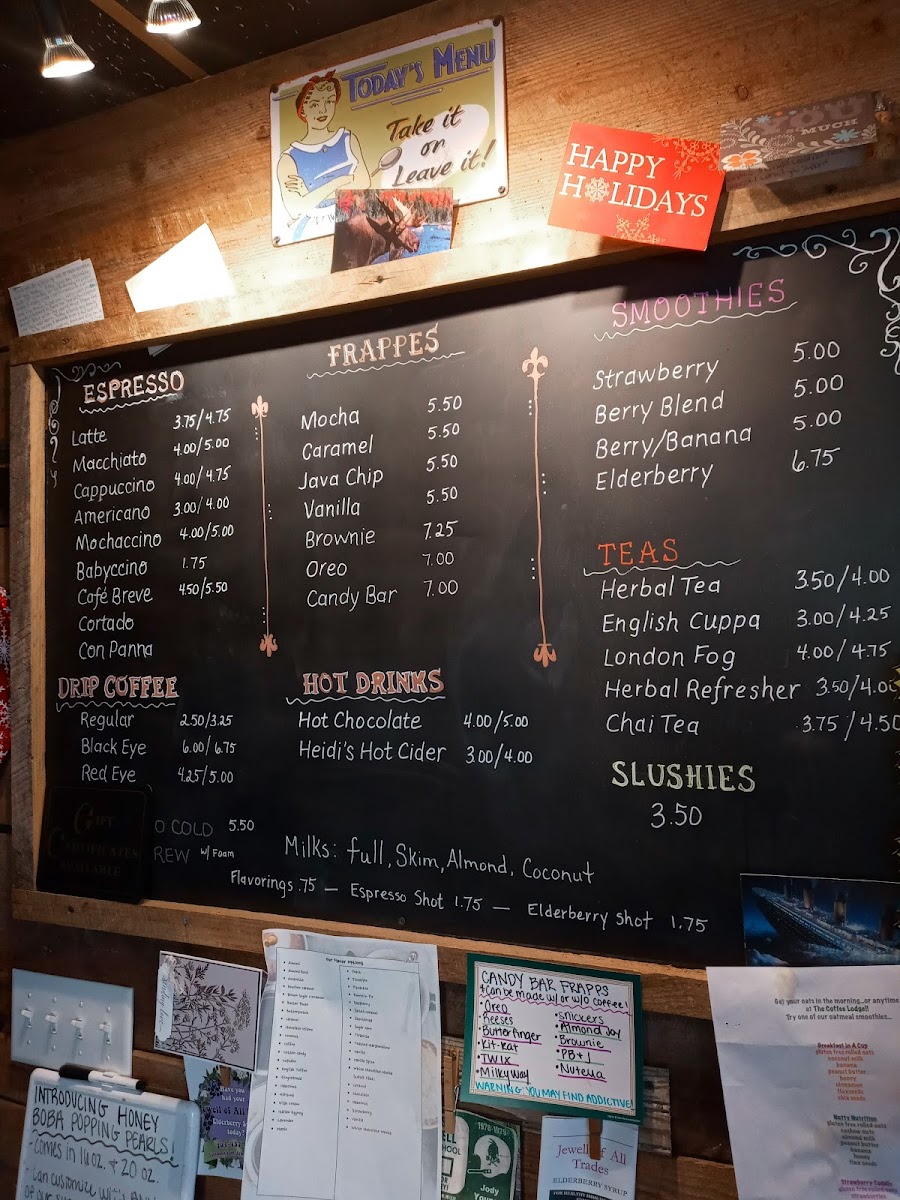 TODAY'S MENU
Take it
or
Leave it!
HAPPY
HOLIDAYS
MUCH
ESPRESSO
Latte 3.75/4.75
Macchiato 4.00/5.00
Cappuccino 4.00/4.75
Americano 3.00/4.00
Mochaccino 4.00/5.00
Babyccino 1.75
Café Breve 4.50/5.50
Cortado
Con Panna
DRIP COFFEE
Regular 2.50/3.25
Black Eye 6.00/6.75
Red Eye 4.25/5.00
GIFT
CERTIFICATES
AVAILABLE
O COLD 5.50
REW w/ Foam
FRAPPES
Mocha 5.50
Caramel 5.50
Java Chip 5.50
Vanilla 5.50
Brownie 7.25
Oreo 7.00
Candy Bar 7.00
HOT DRINKS
Hot Chocolate 4.00/5.00
Heidi's Hot Cider 3.00/4.00
SMOOTHIES
Strawberry 5.00
Berry Blend 5.00
Berry/Banana 5.00
Elderberry 6.75
TEAS
Herbal Tea 3.50/4.00
English Cuppa 3.00/4.25
London Fog 4.00/4.75
Herbal Refresher 3.50/4.00
Chai Tea 3.75/4.50
SLUSHIES
3.50
Milks: full, Skim, Almond, Coconut
Flavorings .75 — Espresso Shot 1.75 — Elderberry shot 1.75
INTRODUCING HONEY
BOBA POPPING PEARLS
- Comes in 16 oz. & 20 oz.
CANDY BAR FRAPPS
*Can be made w/ or w/o coffee!
• Oreo
• Reeses
• Butterfinger
• Kit-Kat
• TWIX
• Milky way
• Snickers
• Almond Joy
• Brownie
• PB+J
• Nutella
WARNING: YOU MAY FIND ADDICTIVE!
1978-1979
Jody
Jewell of All
Trades
ELDERBERRY SYRUP
Get your oats in the morning...or anytime
at The Coffee Lodge!!
Try one of our oatmeal smoothies...
Breakfast in A Cup
gluten free rolled oats
coconut milk
banana
peanut butter
honey
cinnamon
flaxseeds
chia seeds
Nutty Nutrition
gluten free rolled oats
cashew nuts
almond milk
peanut butter
banana
honey
flax seeds
gluten free rolled oats
strawberries